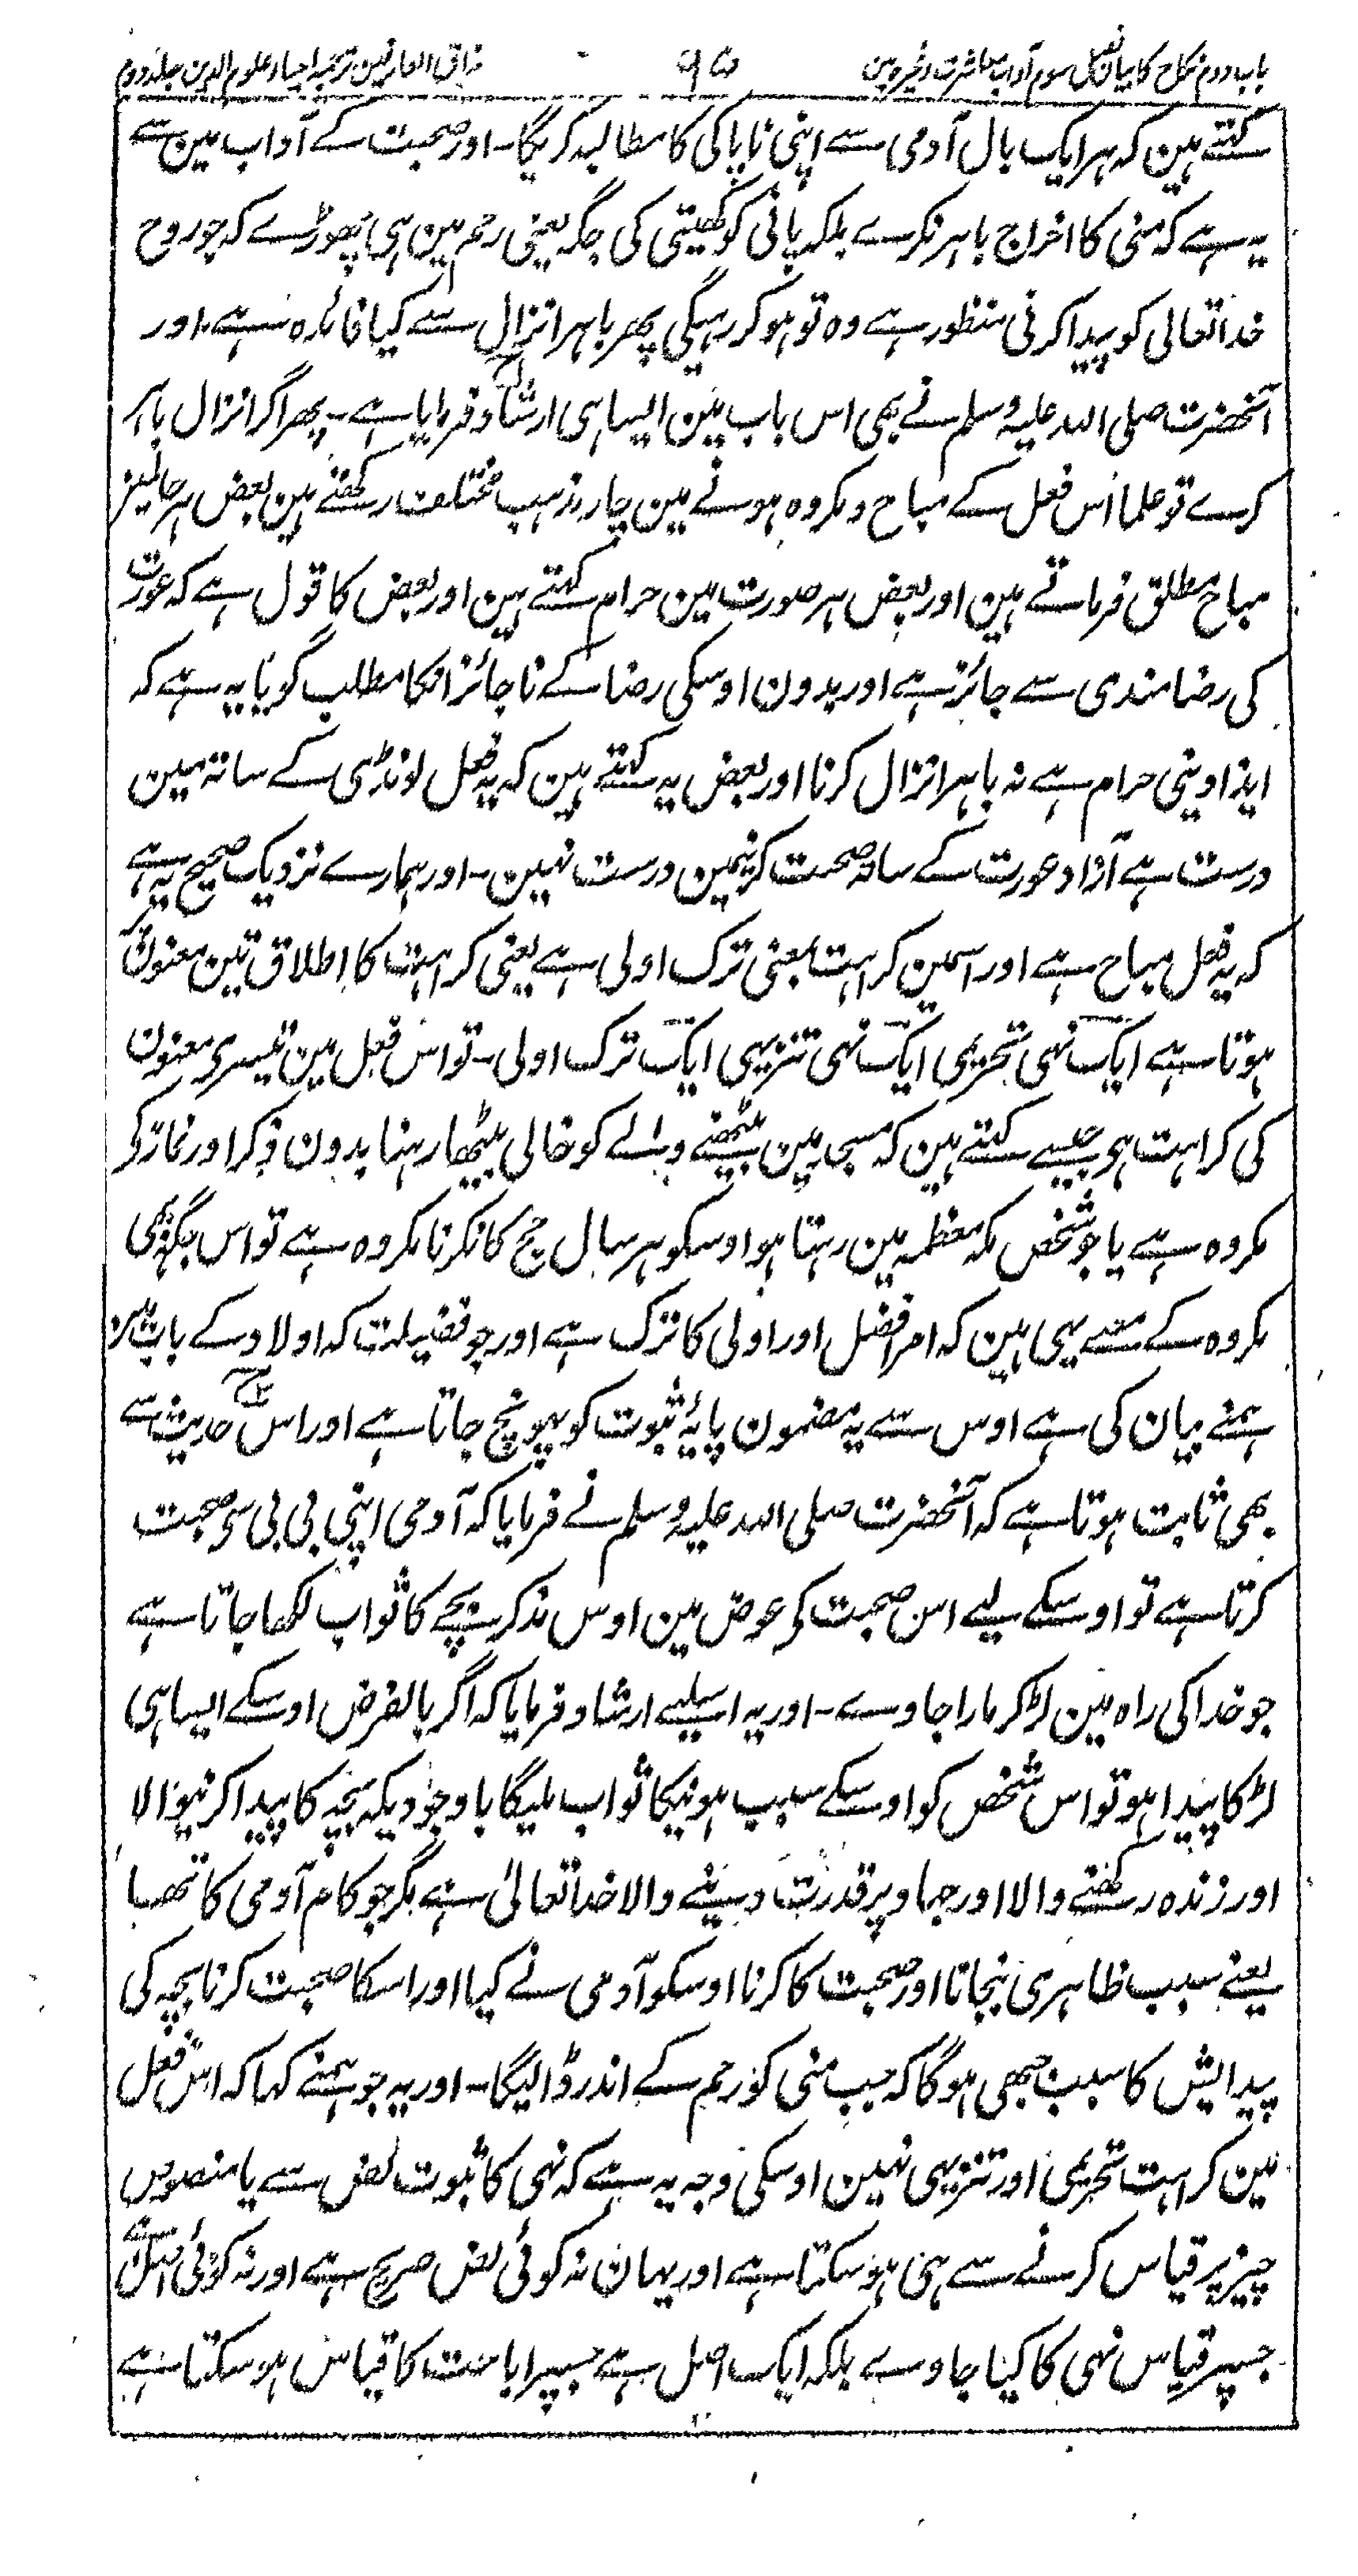 باب دوم نکاح کا بیان فصل سوم آداب معاشرت وغیرہ مین ۹۵ مذاق العارفین ترجمہ احیاء علوم الدین جلد دوم
کہتے ہین کہ ہر ایک بال آدمی سے اپنی ناپاکی کا مطالبہ کریگا۔ اور صحبت کے آداب مین سے
یہ ہے کہ منی کا اخراج باہر نکرے بلکہ پانی کو کھیتی کی جگہ یعنی رحم مین ہی چھوڑے کہ جو روح
خدا تعالی کو پیدا کرنی منظور ہے وہ تو ہو کر رہیگی پھر باہر انزال سے کیا فائدہ ہے، اور
آنحضرت صلی اللہ علیہ وسلم نے بھی اس باب مین ایسا ہی ارشاد فرمایا ہے۔ پھر اگر انزال باہر
کرے تو علما اس فعل کے مباح و مکروہ ہونے مین چار مذہب مختلف رکھتے ہین بعض ہر حالمین
مباح مطلق فرماتے ہین اور بعض ہر صورت مین حرام کہتے ہین اور بعض کا قول ہے کہ عورت
کی رضامندی سے جائز ہے اور بدون اوسکی رضا کے ناجائز انکا مطلب گویا یہ ہے کہ
ایذا دینی حرام ہے نہ باہر انزال کرنا اور بعض یہ کہتے ہین کہ یہ فعل لونڈی کے ساتہ مین
درست ہے آزاد عورت کے ساتہ صحبت کرنیمین درست نہین۔ اور ہمارے نزدیک صحیح یہ ہے
کہ یہ فعل مباح ہے اور اسمین کراہت بمعنی ترک اولی ہے یعنی کراہت کا اطلاق تین معنون پر
ہوتا ہے ایک نہی تحریمی ایک نہی تنزیہی ایک ترک اولی۔ تو اس فعل مین تیسری معنون
کی کراہت ہو جیسے کہتے ہین کہ مسجد مین بیٹھنے والے کو خالی بیٹھا رہنا بدون ذکر اور نماز کو
مکروہ ہے یا جو شخص مکہ معظمہ مین رہتا ہو اوسکو ہر سال حج کا نکرنا مکروہ ہے تو اس جگہ بھی
مکروہ کے معنے یہی ہین کہ امر افضل اور اولی کا ترک ہے اور جو فضیلت کہ اولاد کے باب مین
ہمنے بیان کی ہے اوس سے یہ مضمون پایۂ ثبوت کو پہونچ جاتا ہے اور اس حدیث سے
بھی ثابت ہوتا ہے کہ آنحضرت صلی اللہ علیہ وسلم نے فرمایا کہ آدمی اپنی بی بی سے صحبت
کرتا ہے تو اوسکے لیے اس صحبت کی عوض مین اوس مذکر بچے کا ثواب لکھا جاتا ہے
جو خدا کی راہ مین لڑ کر مارا جاوے۔ اور یہ اسلیے ارشاد فرمایا کہ اگر بالفرض اوسکے ایسا ہی
لڑکا پیدا ہو تو اس شخص کو اوسکے سبب ہونیکا ثواب ملیگا باوجودیکہ بچہ کا پیدا کرنیوالا
اور زندہ رکھنے والا اور جہاد پر قدرت دینے والا خدا تعالیٰ ہے مگر جو کام آدمی کا تھا
یعنے سبب ظاہری بنجانا اور صحبت کا کرنا اوسکو آدمی نے کیا اور اسکا صحبت کرنا بچہ کی
پیدایش کا سبب جبھی ہوگا کہ جب منی کو رحم کے اندر ڈالیگا۔ اور یہ جو ہمنے کہا کہ اس فعل
مین کراہت تحریمی اور تنزیہی نہین اوسکی وجہ یہ ہے کہ نہی کا ثبوت نص سے یا منصوص
چیز پر قیاس کرنے سے ہی ہو سکتا ہے اور یہان نہ کوئی نص صریح ہے اور نہ کوئی اصل ہے
جسپر قیاس نہی کا کیا جاوے بلکہ ایک اصل ہے جسپر اباحت کا قیاس ہو سکتا ہے